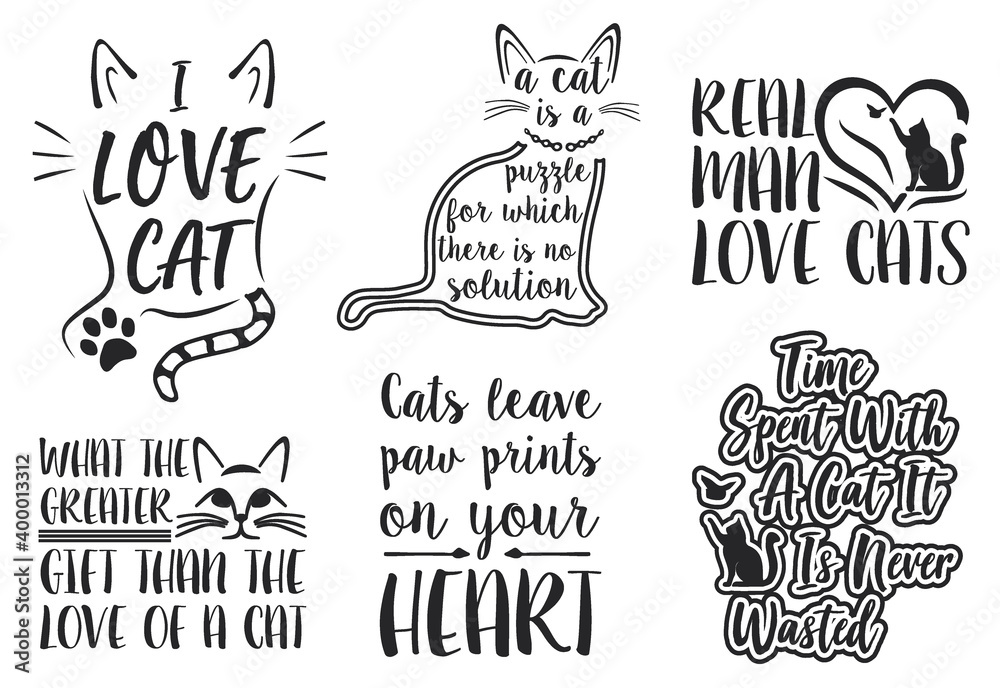 I
LOVE
CAT
a cat
is a
puzzle
for which
there is no
solution
REAL
MAN
LOVE CATS
WHAT THE
GREATER
GIFT THAN THE
LOVE OF A CAT
Cats leave
paw prints
on your
HEART
Time
Spent With
A Cat It
Is Never
Wasted
Adobe Stock | #400013312